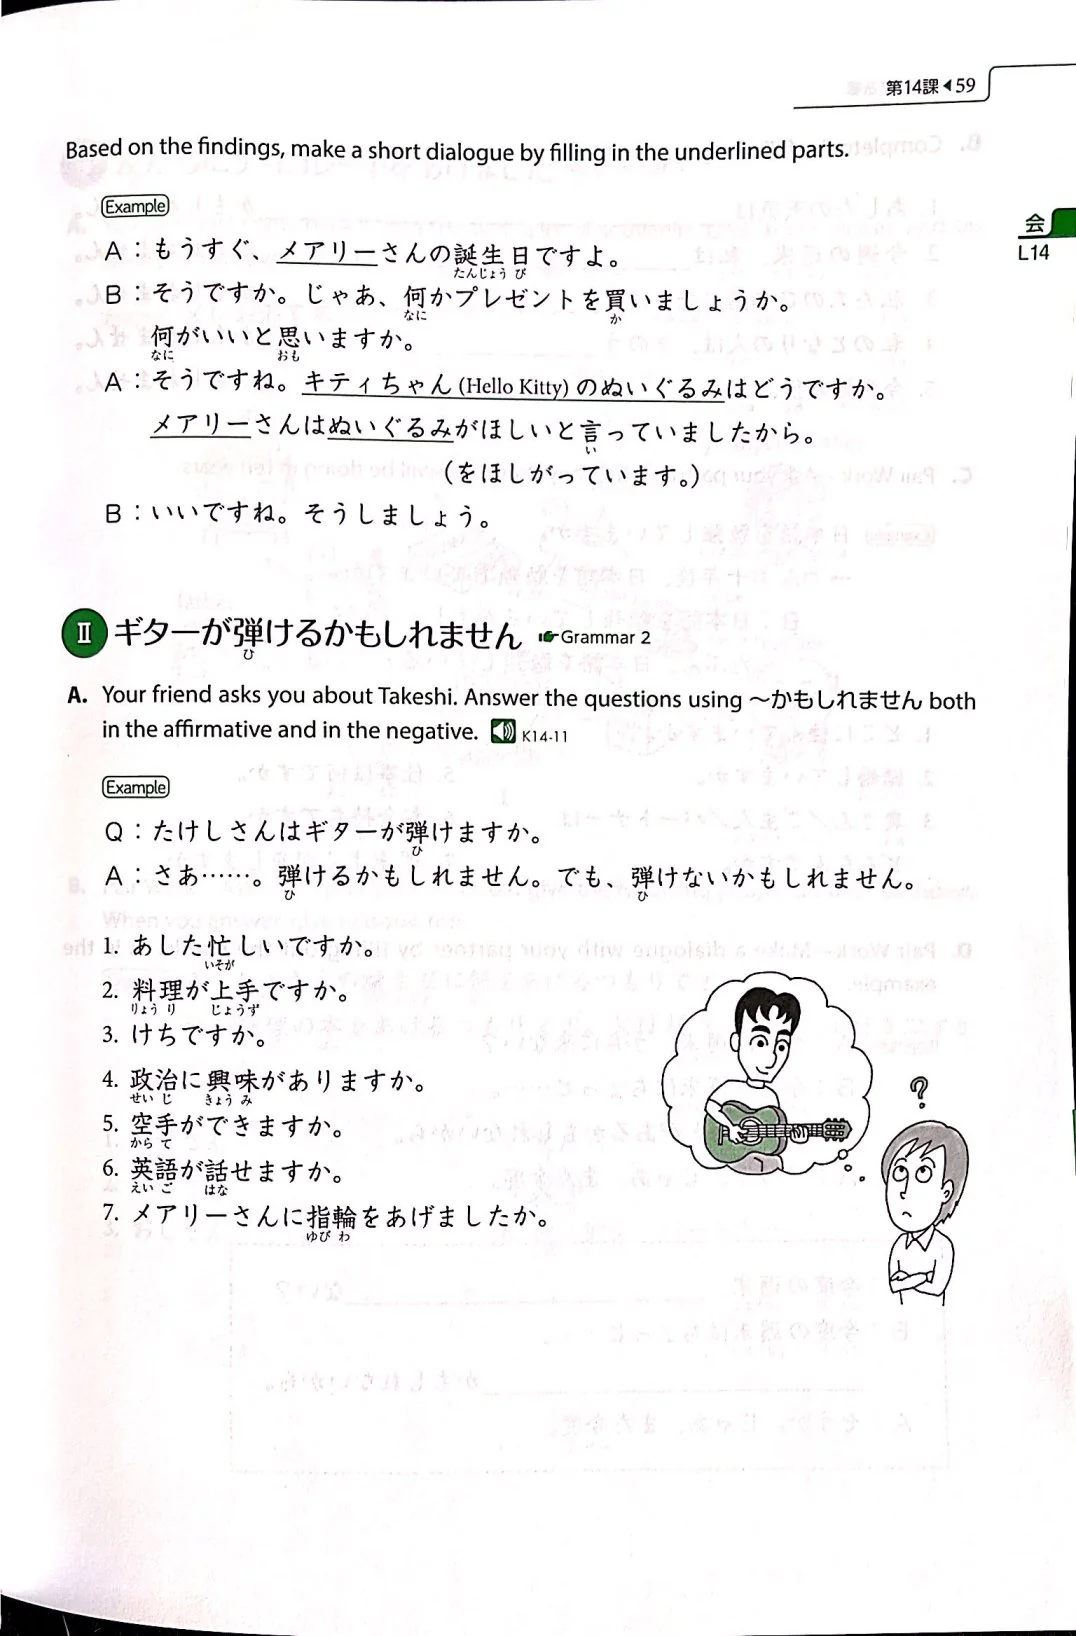 第14課◀59
Based on the findings, make a short dialogue by filling in the underlined parts.
会
L14
Example
A：もうすぐ、メアリーさんの誕生日ですよ。
たんじょう び
B：そうですか。じゃあ、何かプレゼントを買いましょうか。
なに か
何がいいと思いますか。
なに おも
A：そうですね。キティちゃん(Hello Kitty)のぬいぐるみはどうですか。
メアリーさんはぬいぐるみがほしいと言っていましたから。
い
(をほしがっています。)
B：いいですね。そうしましょう。
Ⅱ ギターが弾けるかもしれません ☛Grammar 2
ひ
A. Your friend asks you about Takeshi. Answer the questions using ～かもしれません both
in the affirmative and in the negative. K14-11
Example
Q：たけしさんはギターが弾けますか。
ひ
A：さあ……。弾けるかもしれません。でも、弾けないかもしれません。
ひ ひ
1. あした忙しいですか。
いそが
2. 料理が上手ですか。
りょう り じょうず
3. けちですか。
4. 政治に興味がありますか。
せい じ きょう み
5. 空手ができますか。
から て
6. 英語が話せますか。
えい ご はな
7. メアリーさんに指輪をあげましたか。
ゆび わ
?